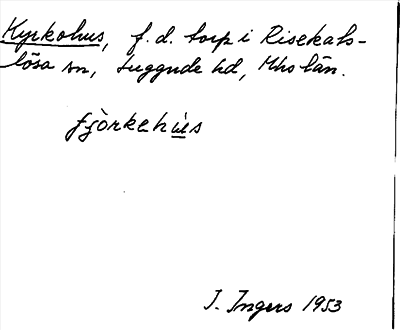 Kyrkohus, f. d. torp i Risekats-
lösa sn, Luggude hd, Mhs län.
fjòrkehùs
I. Ingers 1953